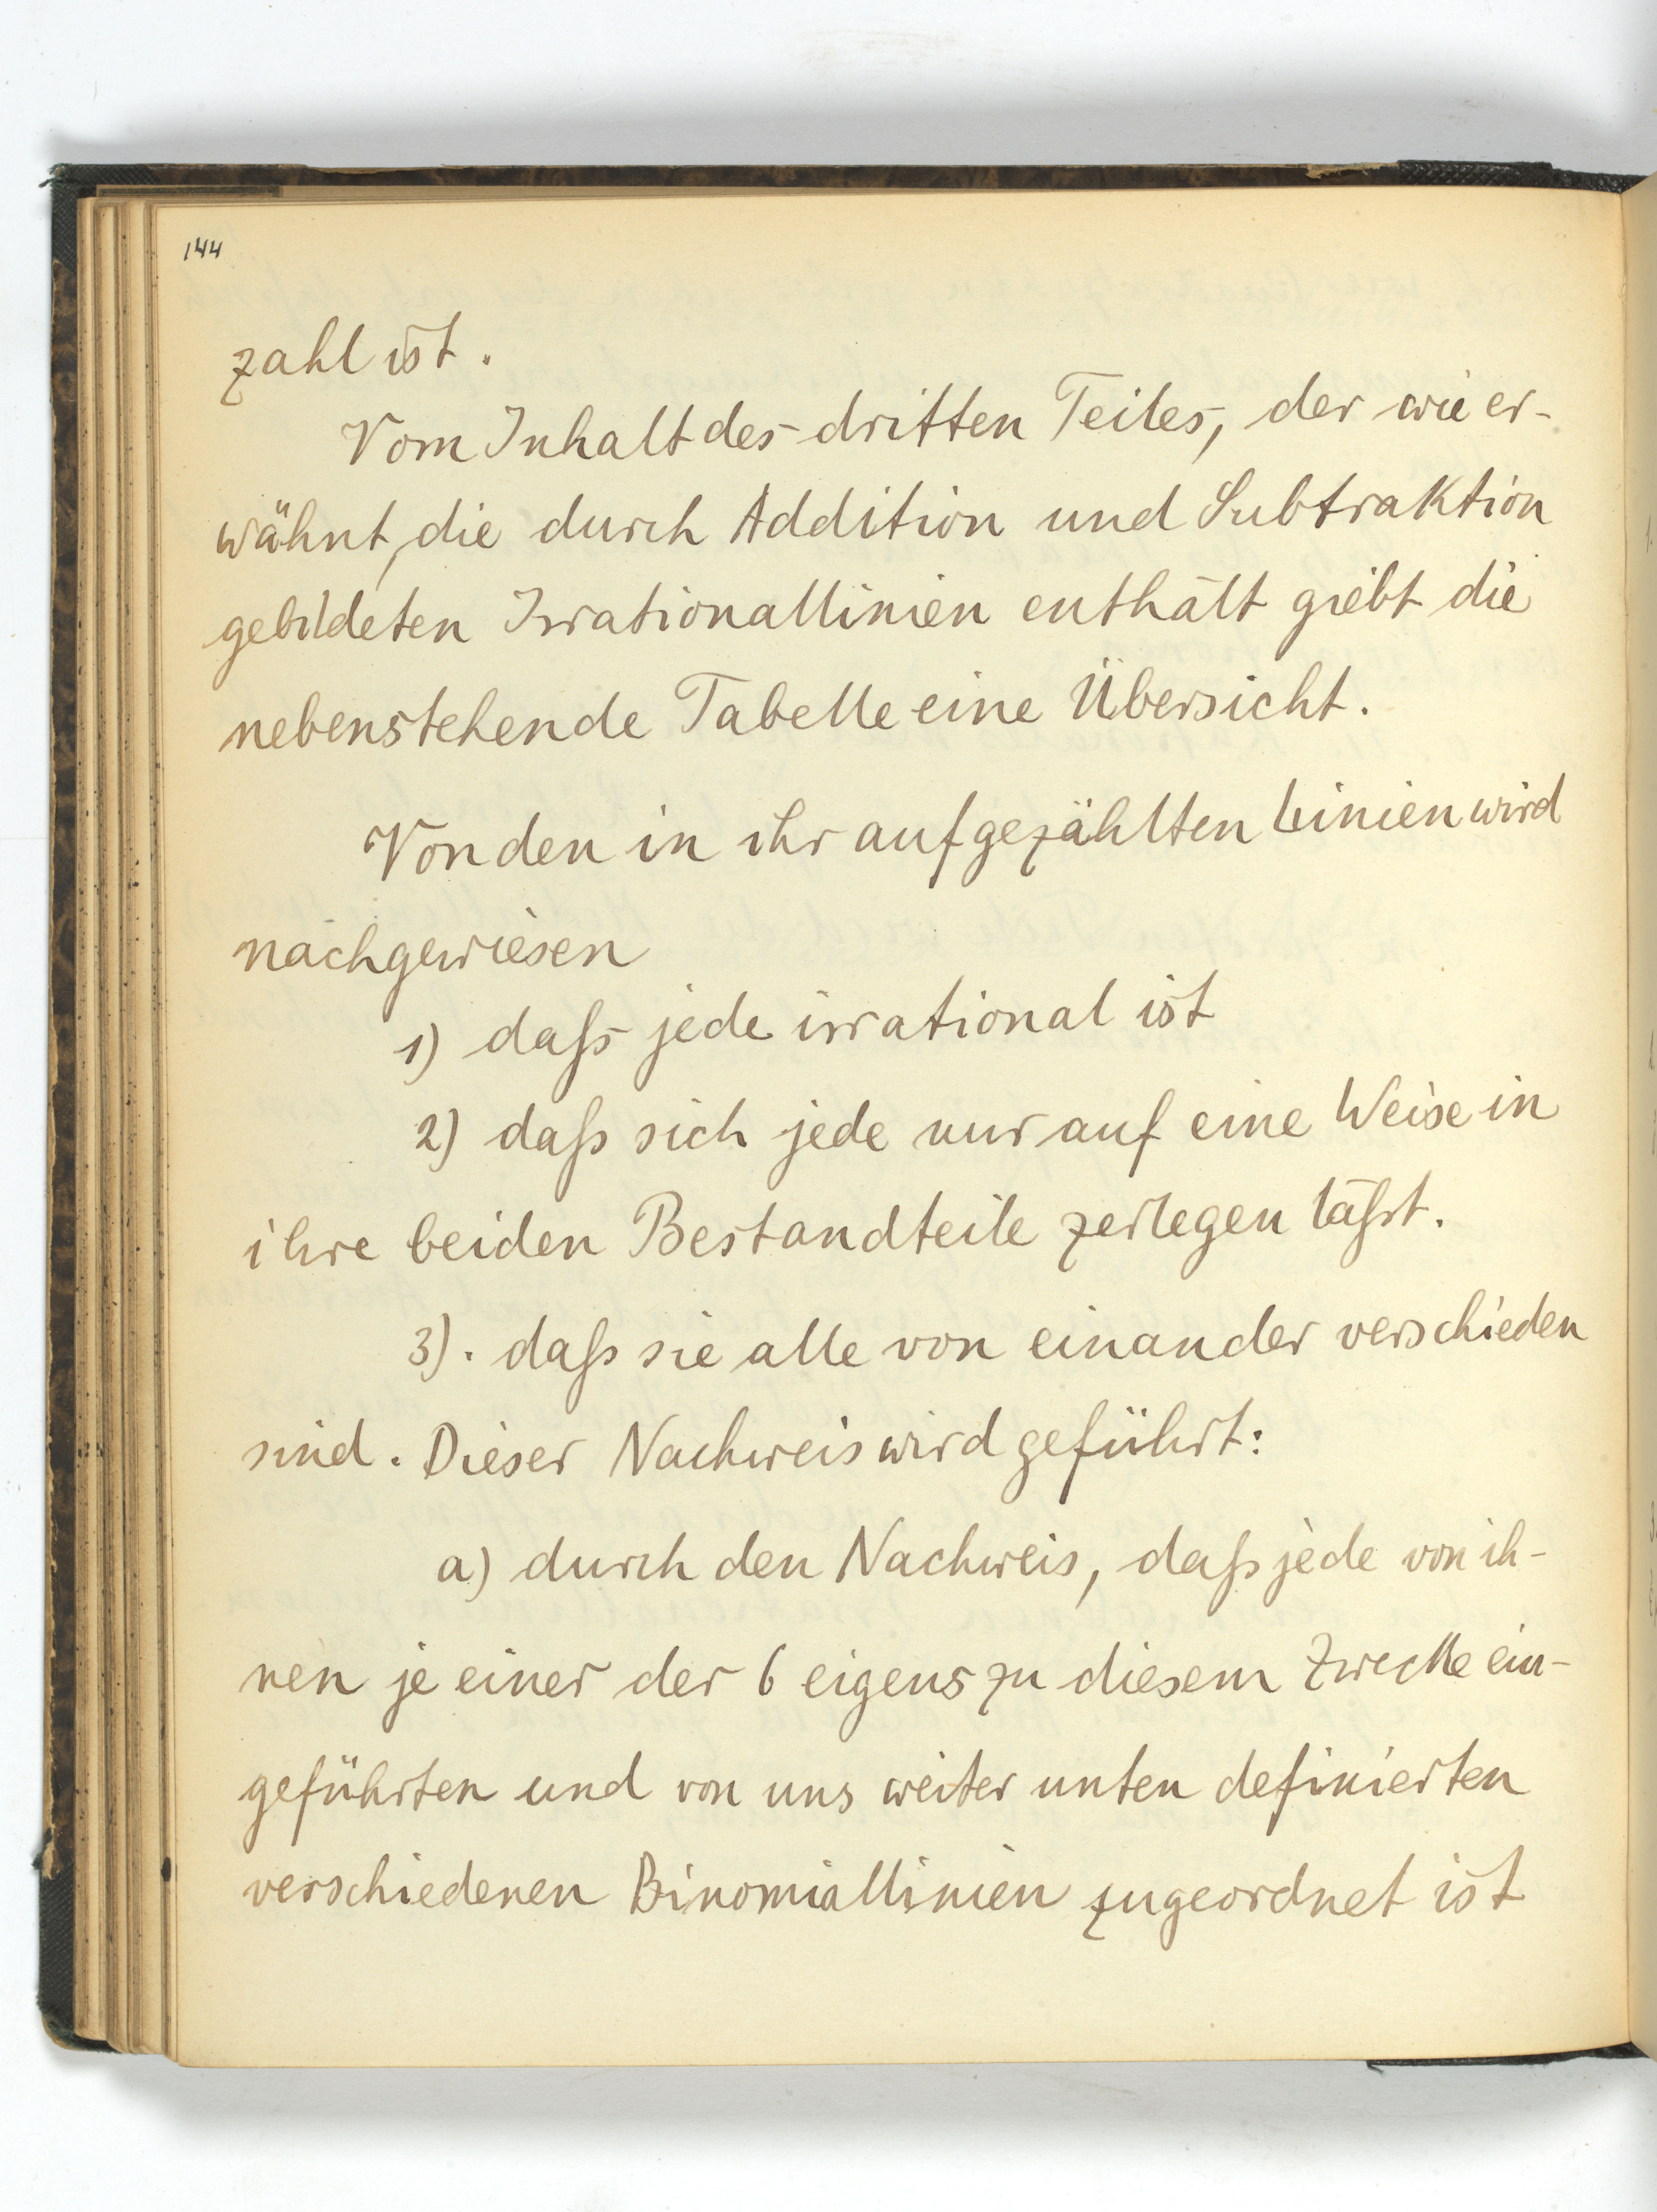 144
zahl ist.
Vom Inhalt des dritten Teiles, der wie er-
wähnt, die durch Addition und Subtraktion
gebildeten Irrationallinien enthält giebt die
nebenstehende Tabelle eine Übersicht.
Von den in ihr aufgezählten Linien wird
nachgewiesen
1) daß jede irrational ist
2) daß sich jede nur auf eine Weise in
ihre beiden Bestandteile zerlegen läßt.
3). daß sie alle von einander verschieden
sind. Dieser Nachweis wird geführt:
a) durch den Nachweis, daß jede von ih-
nen je einer der 6 eigens zu diesem Zwecke ein-
geführten und von uns weiter unten definierten
verschiedenen Binomiallinien zugeordnet ist